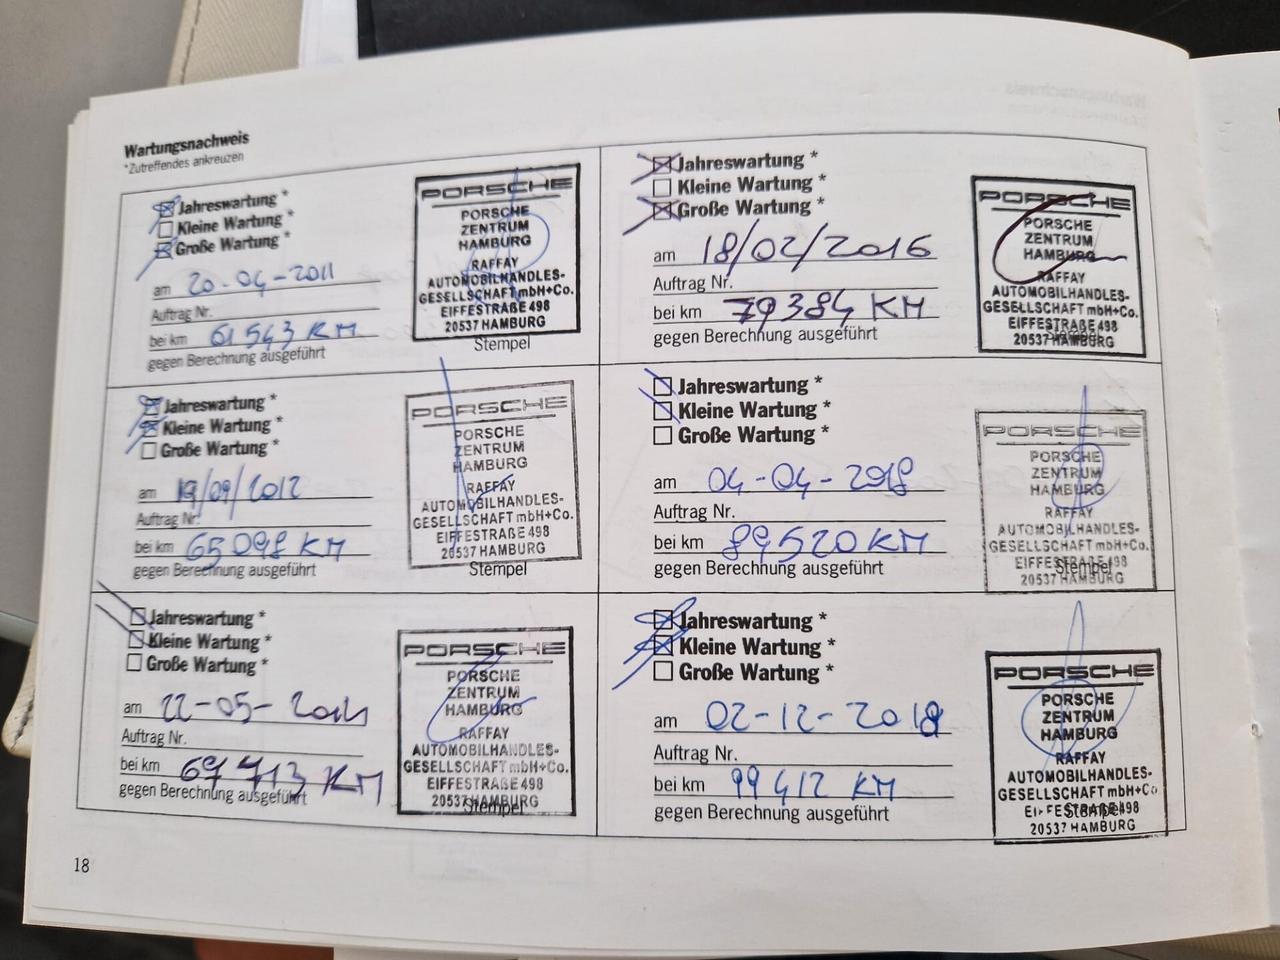 Wartungsnachweis
*Zutreffendes ankreuzen
Jahreswartung *
Kleine Wartung *
Große Wartung *
am 20-04-2011
Auftrag Nr.
bei km 61543 KM
gegen Berechnung ausgeführt
PORSCHE
PORSCHE
ZENTRUM
HAMBURG
RAFFAY
AUTOMOBILHANDLES-
GESELLSCHAFT mbH+Co.
EIFFESTRAßE 498
20537 HAMBURG
Stempel
Jahreswartung *
Kleine Wartung *
Große Wartung *
am 19/09/2012
Auftrag Nr.
bei km 65098 KM
gegen Berechnung ausgeführt
PORSCHE
PORSCHE
ZENTRUM
HAMBURG
RAFFAY
AUTOMOBILHANDLES-
GESELLSCHAFT mbH+Co.
EIFFESTRAßE 498
20537 HAMBURG
Stempel
Jahreswartung *
Kleine Wartung *
Große Wartung *
am 22-05-2014
Auftrag Nr.
bei km 67713 KM
gegen Berechnung ausgeführt
PORSCHE
PORSCHE
ZENTRUM
HAMBURG
RAFFAY
AUTOMOBILHANDLES-
GESELLSCHAFT mbH+Co.
EIFFESTRAßE 498
20537 HAMBURG
Stempel
Jahreswartung *
Kleine Wartung *
Große Wartung *
am 18/02/2016
Auftrag Nr.
bei km 79384 KM
gegen Berechnung ausgeführt
PORSCHE
PORSCHE
ZENTRUM
HAMBURG
RAFFAY
AUTOMOBILHANDLES-
GESELLSCHAFT mbH+Co.
EIFFESTRAßE 498
20537 HAMBURG
Stempel
Jahreswartung *
Kleine Wartung *
Große Wartung *
am 04-04-2018
Auftrag Nr.
bei km 89520 KM
gegen Berechnung ausgeführt
PORSCHE
PORSCHE
ZENTRUM
HAMBURG
RAFFAY
AUTOMOBILHANDLES-
GESELLSCHAFT mbH+Co.
EIFFESTRAßE 498
20537 HAMBURG
Stempel
Jahreswartung *
Kleine Wartung *
Große Wartung *
am 02-12-2019
Auftrag Nr.
bei km 99412 KM
gegen Berechnung ausgeführt
PORSCHE
PORSCHE
ZENTRUM
HAMBURG
RAFFAY
AUTOMOBILHANDLES-
GESELLSCHAFT mbH+Co.
EIFFESTRAßE 498
20537 HAMBURG
Stempel
18